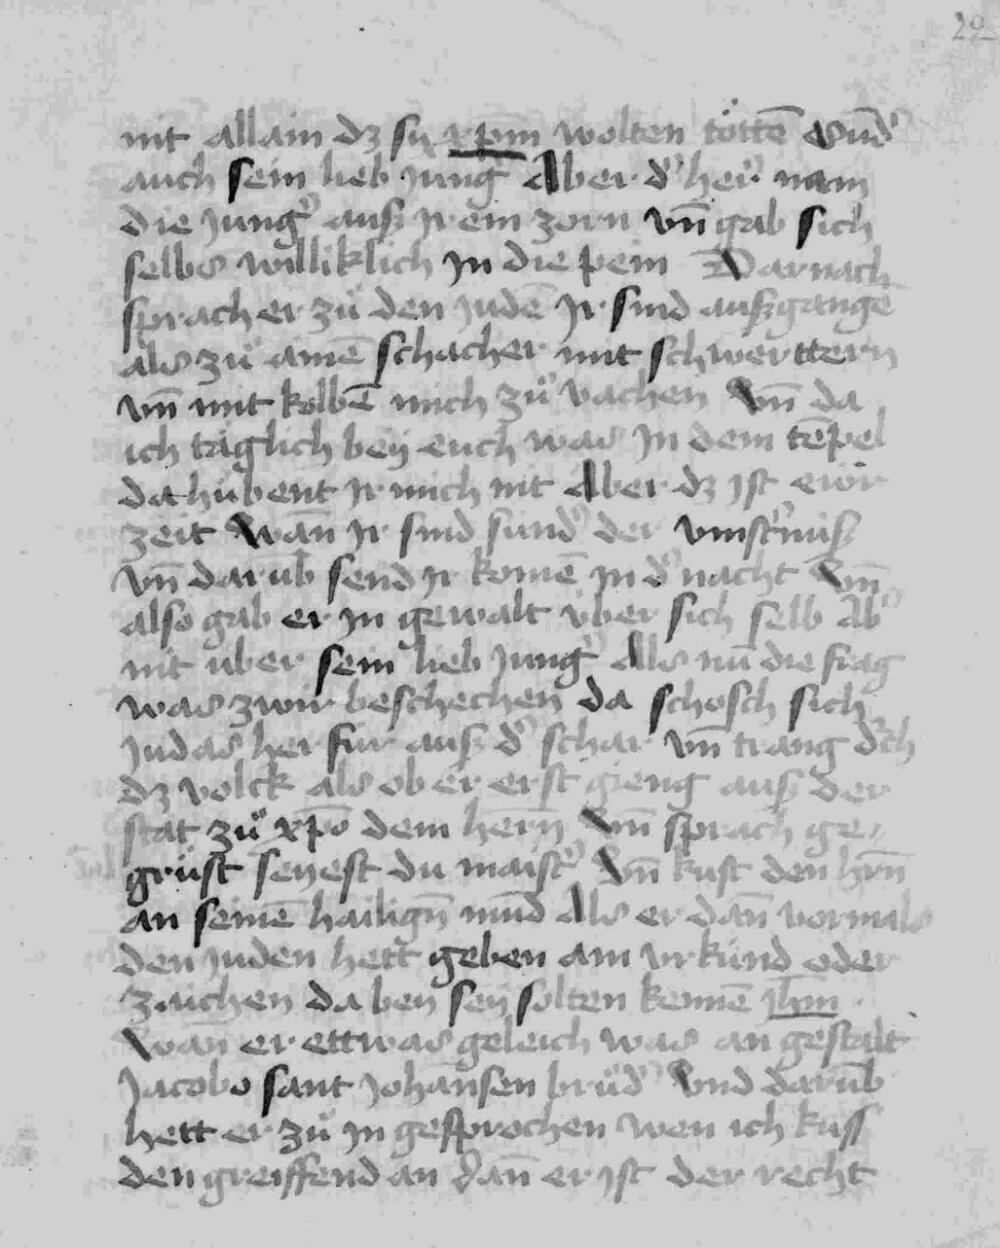 22
nit allain dz sy xp̄m wolten töttē Sund̕
auch sein lieb Jung̕ Aber d̕ her̕ nam
die Jung̕ ausz Jrem zorn vn̄ gab sich
selbs williklich Jn die pein Darnach
sprach er zů den Judē Jr sind auszgangē
als zů aimē schacher mit schwerttern
vn̄ mit kolbē mich zů vachen Vn̄ da
ich täglich bey euch was Jn dem tēpel
da hübent Jr mich nit Aber dz ist ewr
zeit Wan̄ Jr sind sünd̕ der vinst̕nusz
vn̄ darūb send Jr komē Jn d̕ nacht Vn̄
also gab er Jn gewalt vber sich selb Ab̕
nit uber sein lieb Jung̕ Als nū die frag
was zwir beschechen da schosch sich
Judas her fur ausz d̕ schar vn̄ trang d̕ch
dz volck als ob er erst gieng ausz der
stat zů xp̄o dem hern̄ Vn̄ sprach ge/
grüst seyest du maist̕ Vn̄ kust den hrn̄
an seinē hailign̄ mūd Als er dan̄ vormals
den Juden hett geben am vrkünd oder
zaichen da ben sey solten kennē Jhm̄
Wan̄ er ettwas geleich was an gestalt
Jacobo sant Johansen brůd̕ Vnd darūb
hett er zů Jn gesprochen wen ich kuss
den greiffend an dan̄ er ist der recht